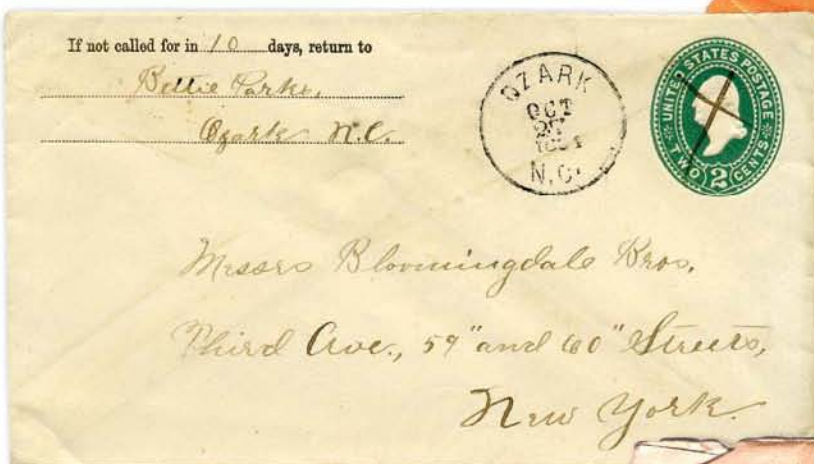 If not called for in 10 days, return to
Bettie Parks,
Ozark N.C.
OZARK
OCT
27
N.C.
UNITED STATES POSTAGE
TWO 2 CENTS
Messrs Bloomingdale Bros.
Third Ave., 59" and 60" Streets,
New York.